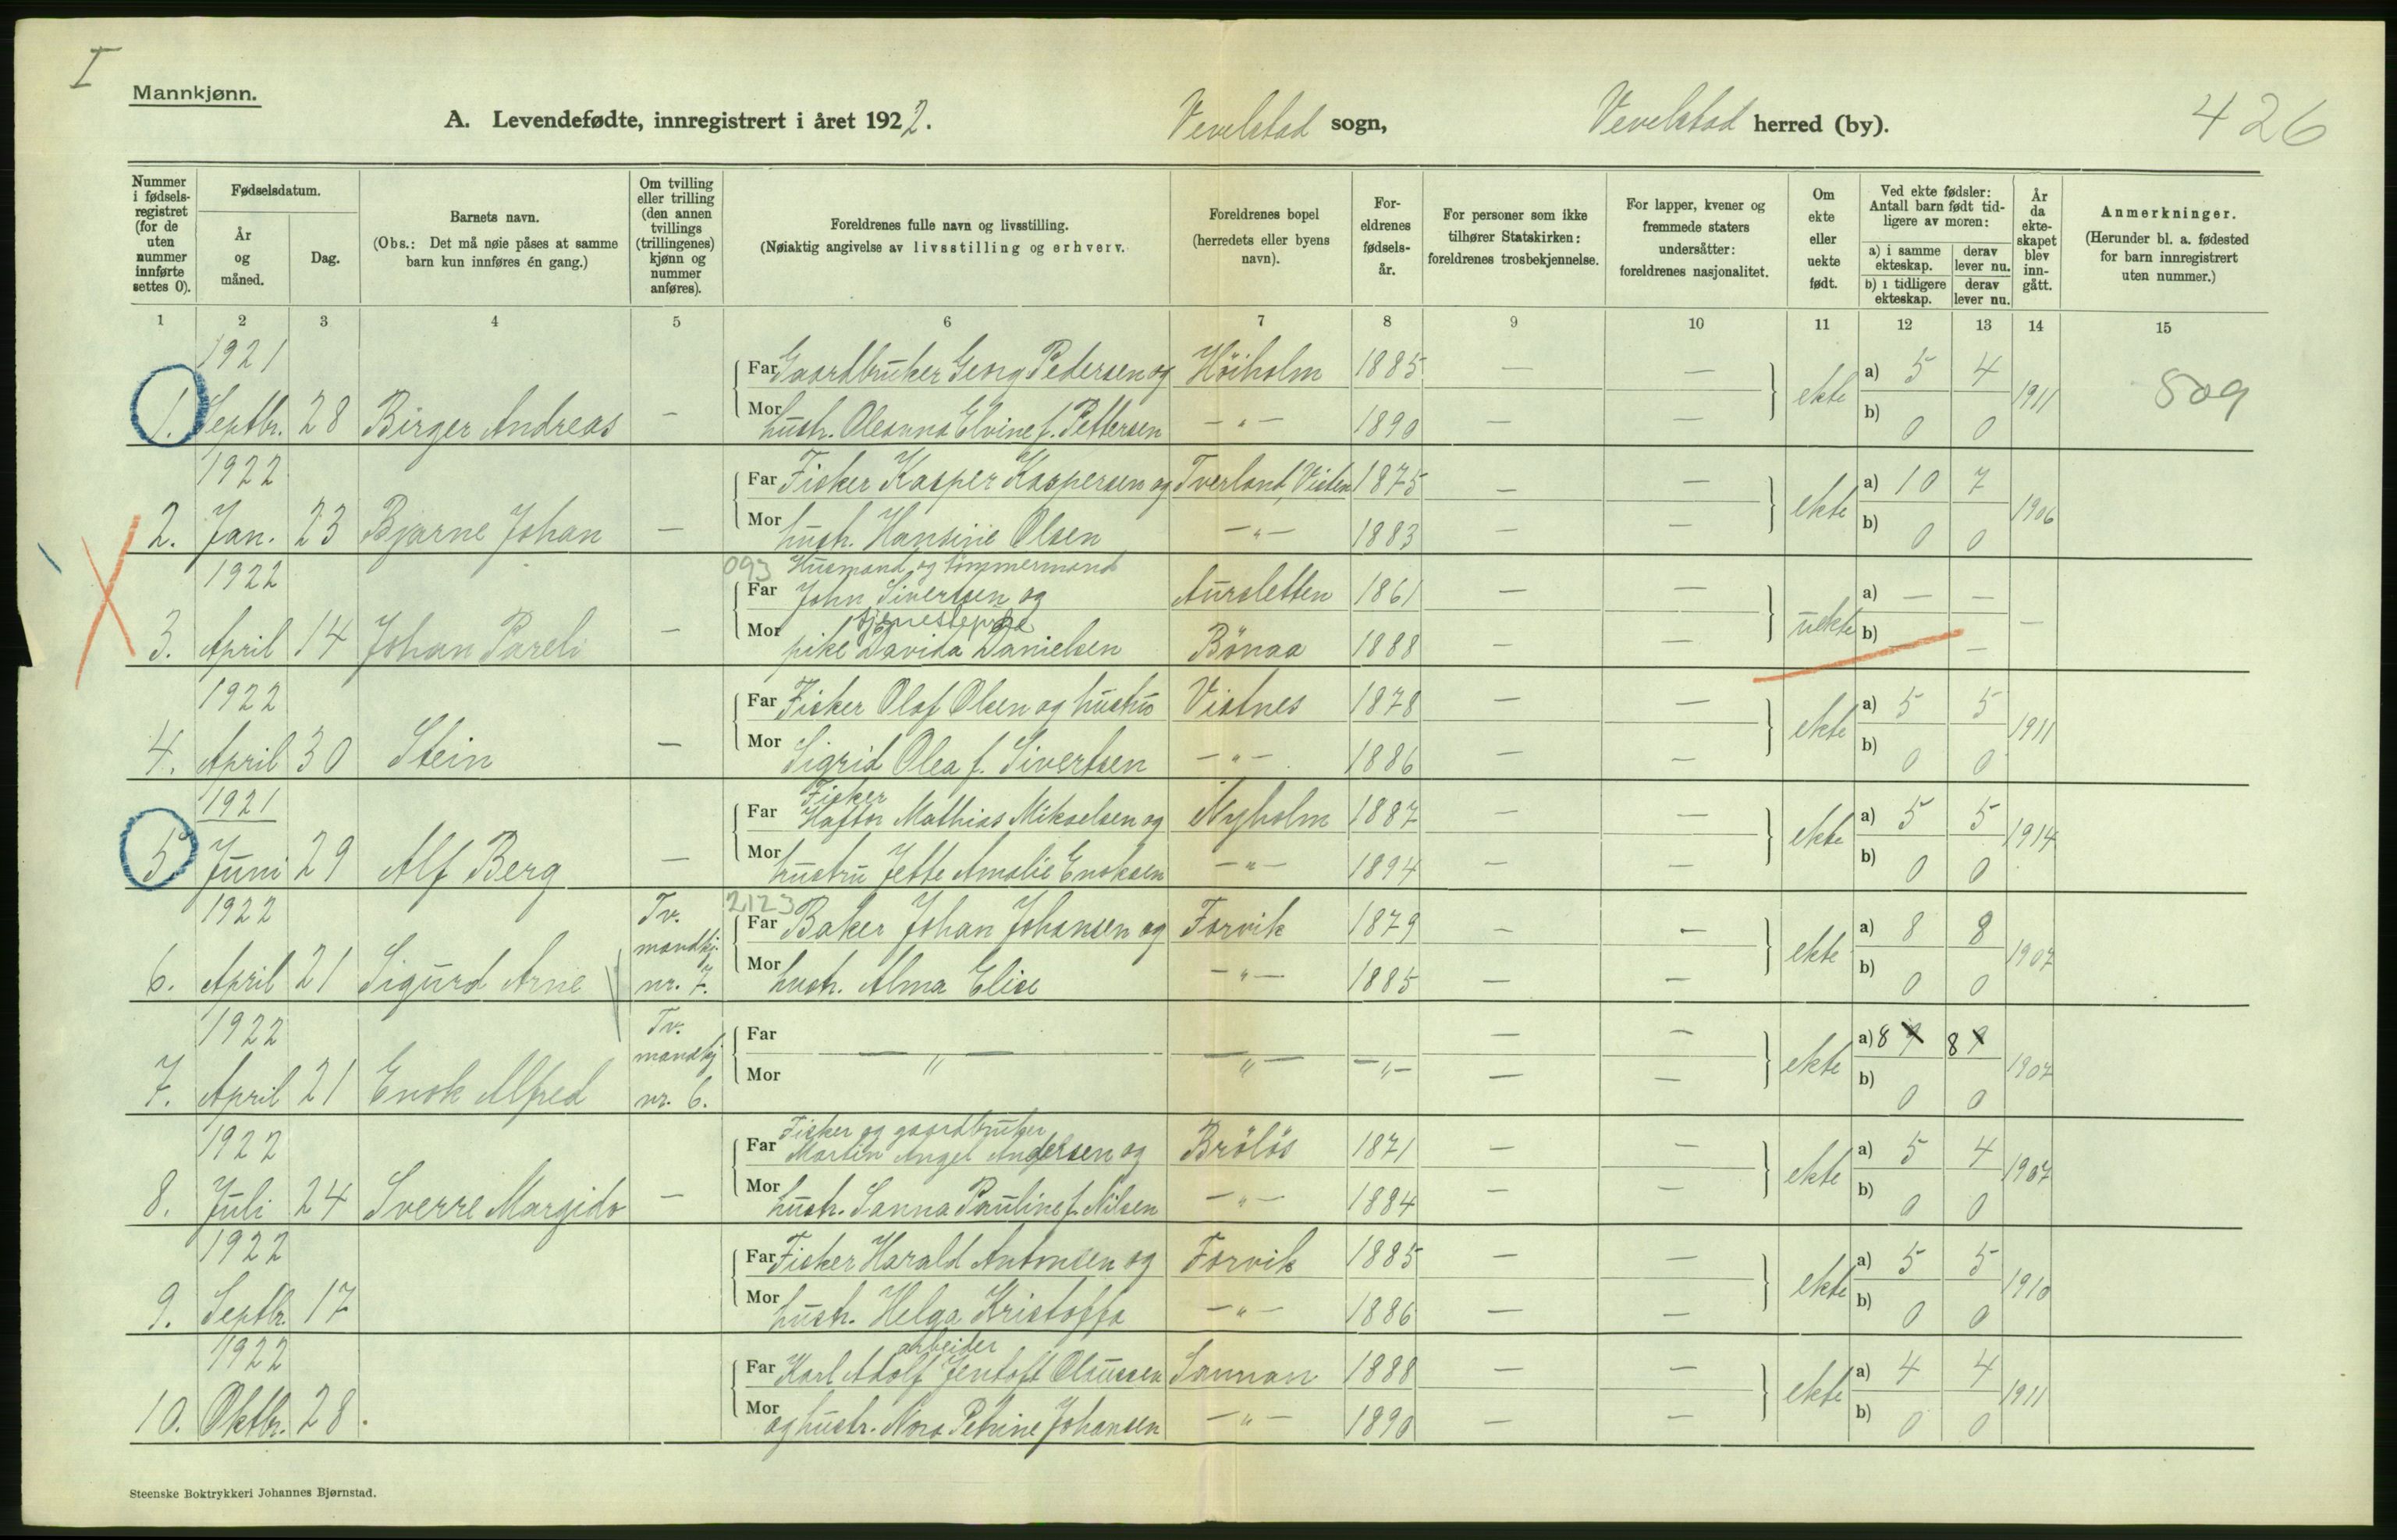 I
Mannkjønn.
A. Levendefødte, innregistrert i året 1922. Vevelstad sogn, Vevelstad herred (by). 426
Nummer i fødselsregistret (for de uten nummer innførte settes 0).
Fødselsdatum.
År og måned.
Dag.
Barnets navn.
(Obs.: Det må nøie påses at samme barn kun innføres én gang.)
Om tvilling eller trilling (den annen tvillings (trillingenes) kjønn og nummer anføres).
Foreldrenes fulle navn og livsstilling.
(Nøiaktig angivelse av livsstilling og erhverv.
Foreldrenes bopel (herredets eller byens navn).
Foreldrenes fødselsår.
For personer som ikke tilhører Statskirken: foreldrenes trosbekjennelse.
For lapper, kvener og fremmede staters undersåtter: foreldrenes nasjonalitet.
Om ekte eller uekte født.
Ved ekte fødsler: Antall barn født tidligere av moren:
a) i samme ekteskap. derav lever nu.
b) i tidligere ekteskap. derav lever nu.
År da ekteskapet blev inngått.
Anmerkninger.
(Herunder bl. a. fødested for barn innregistrert uten nummer.)
1 2 3 4 5 6 7 8 9 10 11 12 13 14 15
1921
Far Gaardbruker Georg Pedersen og Höiholm 1885 — — a) 5 4
1. Septbr. 28 Birger Andreas — Mor hustr. Oleanna Elvine f. Pettersen —"— 1890 — — ekte b) 0 0 1911 509
1922
Far Fisker Kasper Kaspersen og Tverland, Visten 1875 — — a) 10 7
2. Jan. 23 Bjarne Johan — Mor hustr. Hansine Olsen —"— 1883 — — ekte b) 0 0 1906
1922 093 Husmand og tömmermand
Far John Sivertsen og Aursletten 1861 — — a) — —
tjenestepige
3. April 14 Johan Pareli — Mor pike Davida Danielsen Bönaa 1888 — uekte b) — — —
1922
Far Fisker Olaf Olsen og hustru Vistnes 1878 — — a) 5 5
4. April 30 Stein — Mor Sigrid Olea f. Sivertsen —"— 1886 — — ekte b) 0 0 1911
1921 Fisker
Far Haftor Mathias Mikaelsen og Nyholm 1887 — — a) 5 5
5 Juni 29 Alf Berg — Mor hustru Jette Amalie Enoksen —"— 1894 — — ekte b) 0 0 1914
1922 Tv. 2123
Far Baker Johan Johansen og Forvik 1879 — — a) 8 8
6. April 21 Sigurd Arne mandkj. nr. 7. Mor hustr. Alma Elise —"— 1885 — — ekte b) 0 0 1907
1922 Tv.
Far —"— —"— —"— — — a) 8 9 8 9
7. April 21 Enok Alfred mandkj nr. 6. Mor — — ekte b) 0 0 1907
1922 Fisker og gaardbruker
Far Martin Angel Andersen og Brölös 1871 — — a) 5 4
8. Juli 24 Sverre Margido — Mor hustr. Sanna Pauline f. Nilsen —"— 1884 — — ekte b) 0 0 1907
1922
Far Fisker Harald Antonsen og Forvik 1885 — — a) 5 5
9. Septbr. 17 Mor hustr. Helga Kristoffa —"— 1886 — — ekte b) 0 0 1910
1922 arbeider
Far Karl Adolf Jentoft Olaussen 1888 — — a) 4 4
10. Oktbr. 28. Mor og hustr. Nora Petrine Johansen —"— 1890 — — ekte b) 0 0 1911
Steenske Boktrykkeri Johannes Bjørnstad.